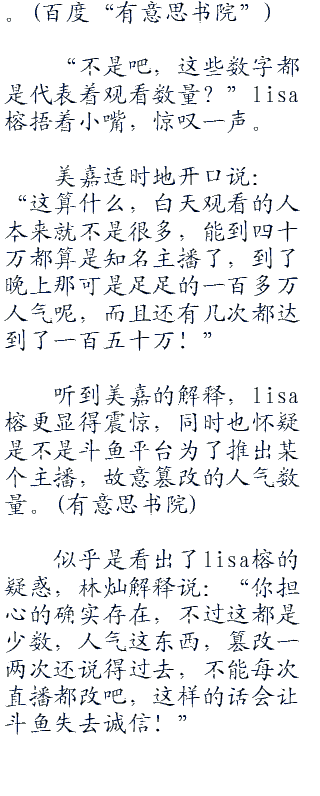 。(百度“有意思书院”)
“不是吧，这些数字都
是代表着观看数量？”lisa
榕捂着小嘴，惊叹一声。
美嘉适时地开口说：
“这算什么，白天观看的人
本来就不是很多，能到四十
万都算是知名主播了，到了
晚上那可是足足的一百多万
人气呢，而且还有几次都达
到了一百五十万！”
听到美嘉的解释，lisa
榕更显得震惊，同时也怀疑
是不是斗鱼平台为了推出某
个主播，故意篡改的人气数
量。(有意思书院)
似乎是看出了lisa榕的
疑惑，林灿解释说：“你担
心的确实存在，不过这都是
少数，人气这东西，篡改一
两次还说得过去，不能每次
直播都改吧，这样的话会让
斗鱼失去诚信！”